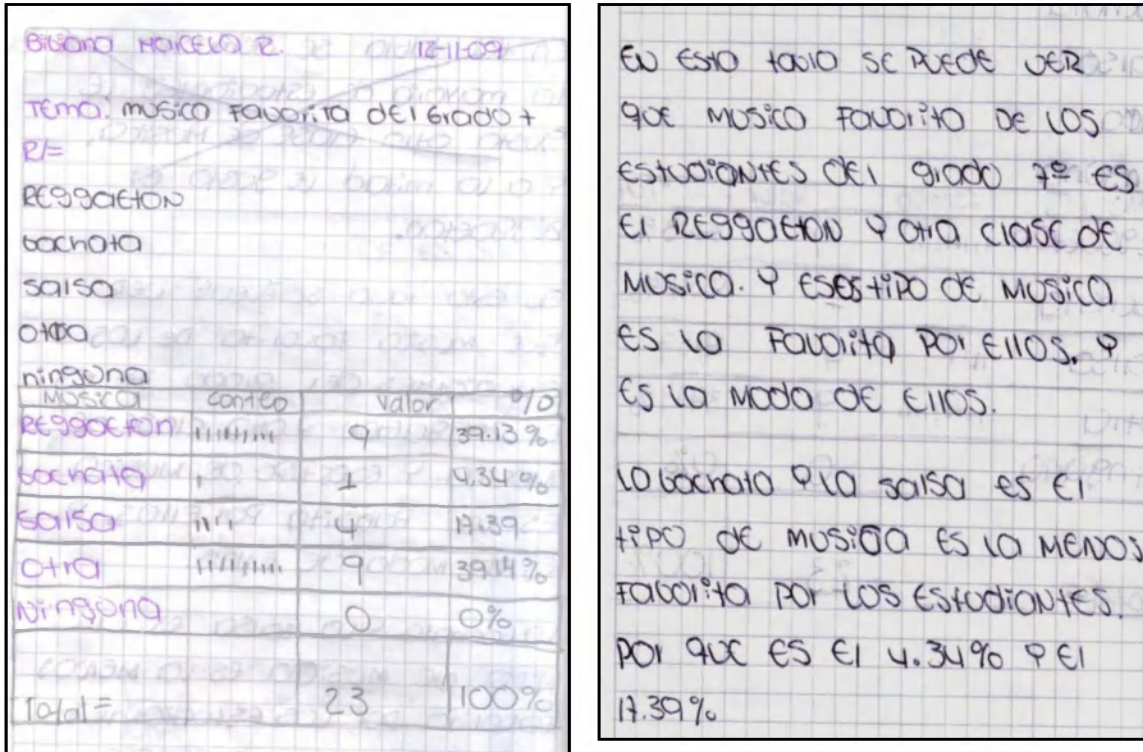 Bibiana Marcela R. 12-11-09
Tema: musica favorita del Grado 7
R/=
REggaeton
bachata
salsa
otra
ninguna
Musica conteo valor %
REggaeton ııııııııı 9 39.13 %
bachata ı 1 4.34 %
salsa ıııı 4 17.39
otra ııııııııı 9 39.14 %
Ninguna 0 0%
Total = 23 100%
EN esta tabla SE PUEDE VER
QUE MUSICA Favorita DE LOS
EStudiantES dEl grado 7º ES
El REggaeton Y otra clase de
MUSica. Y ESES tipo de MUSica
ES la Favorita Por Ellos. Y
ES la Moda de Ellos.
la bachata Y la salsa es El
tipo de musica ES la MENOS
Faborita por LOS EStudiantES.
por QUE ES El 4.34% Y El
17.39%